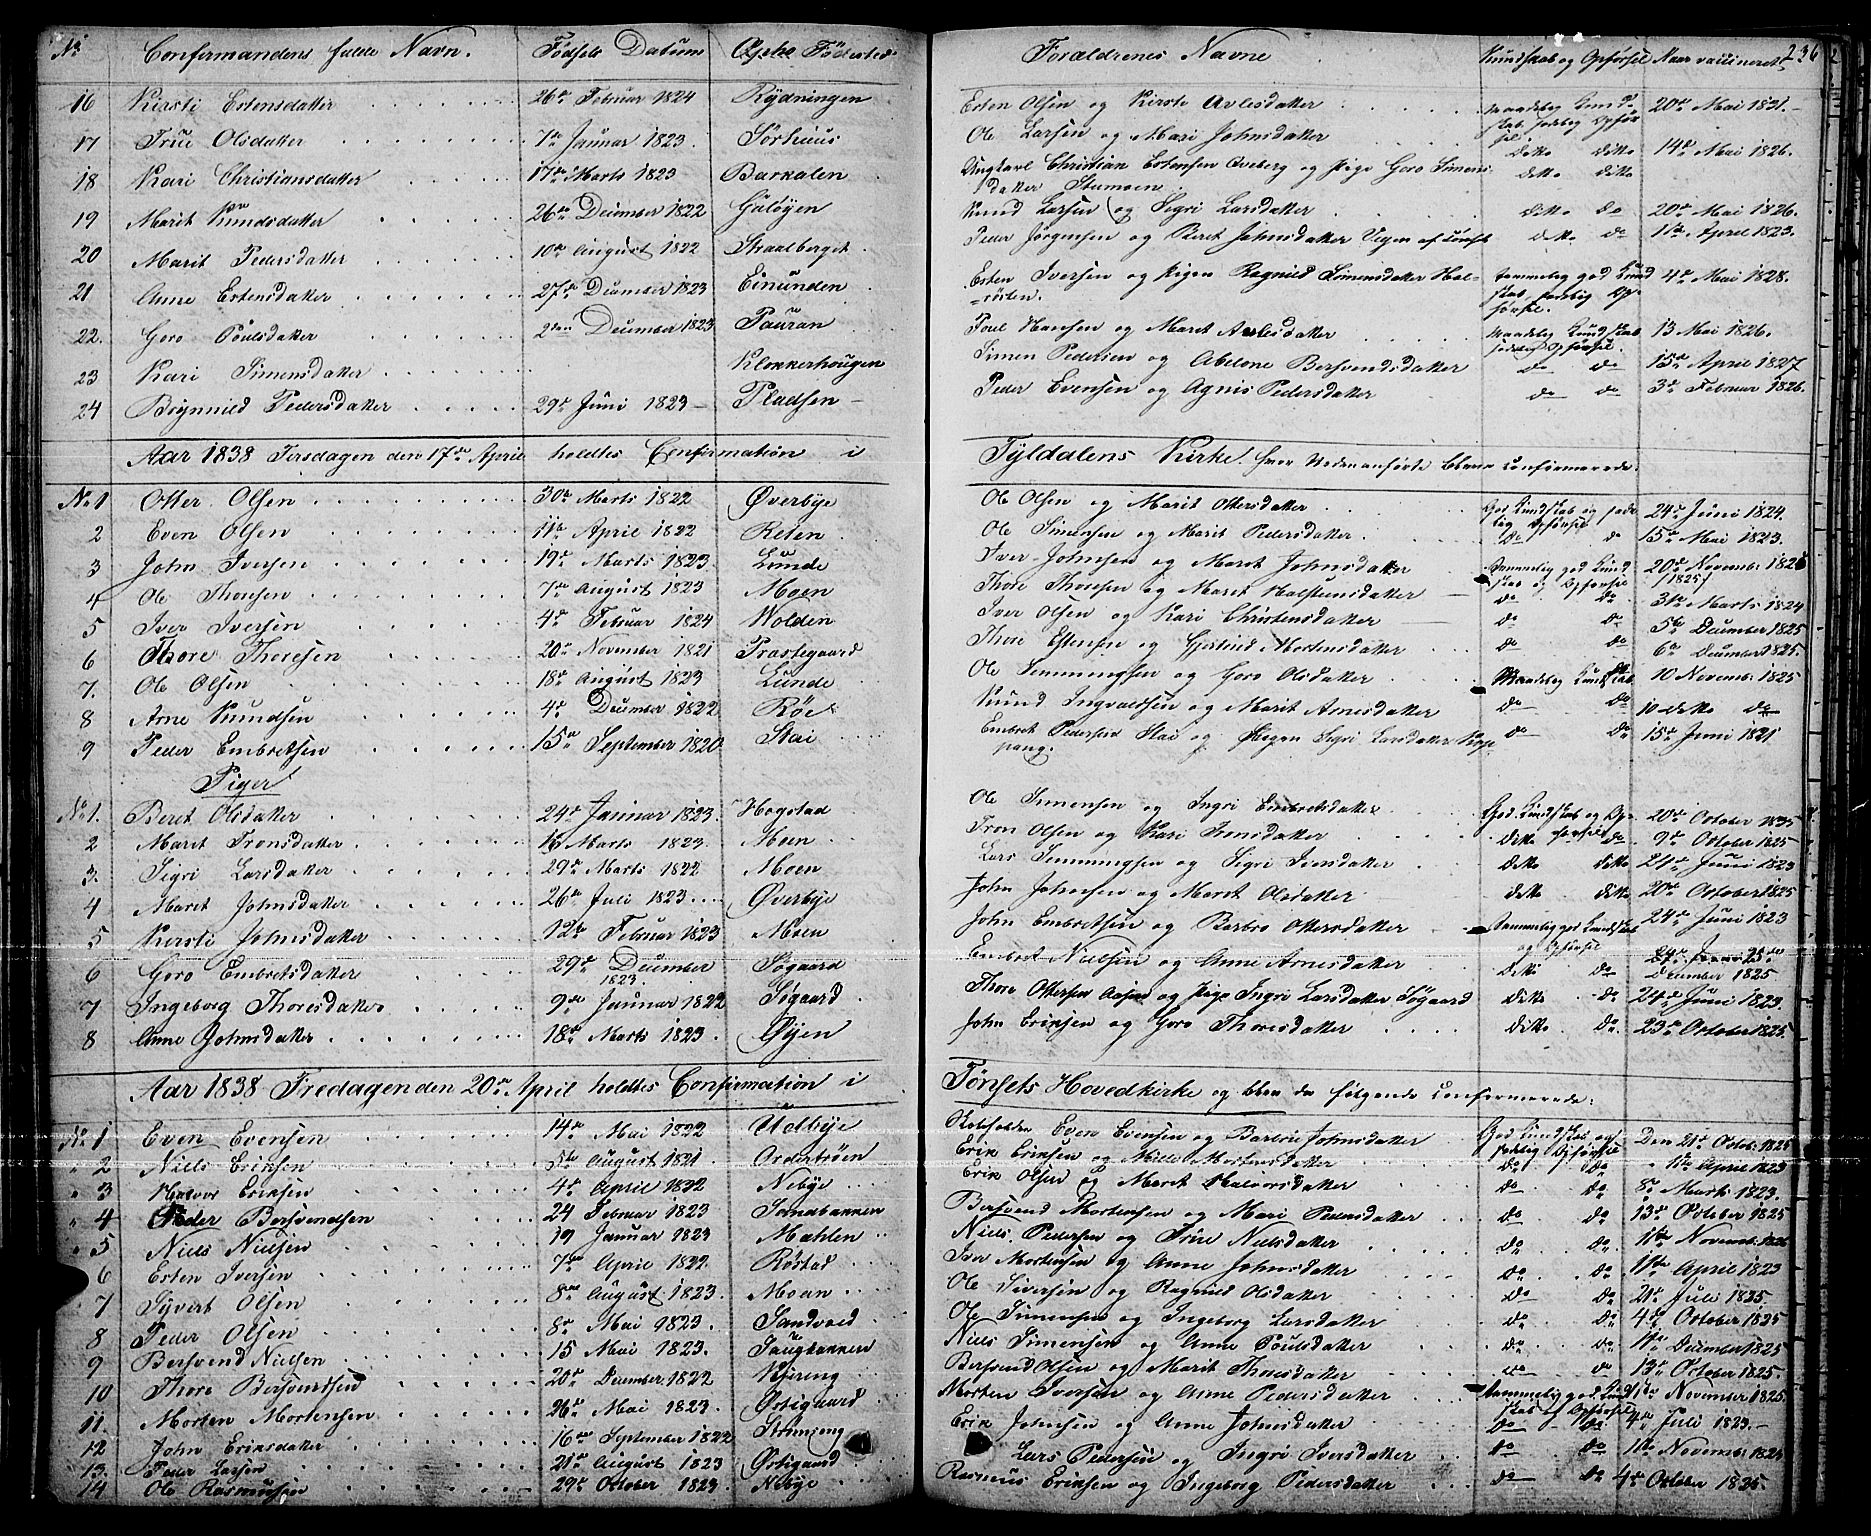 No Confirmandens fulde Navn. Fødsels Datum Fødested Forældrenes Navne Kundskab og Opførsel Naar vaccineret 236
16 Kirsti Estensdatter 26de Februar 1824 Rydningen Esten Olsen og Kirsti Avlesdatter maadelig Kundskab sædelig Opførsel 20de Mai 1831.
17 Olsdatter 7de Januar 1823 Sørhuus Ole Larsen og Mari Johnsdatter ditto ditto 14de Mai 1826.
18 Kari Christiansdatter 17de Marts 1823 Barkalen Ungkarl Christian Estensen og Pige Goro Simensdatter Stumoen ditto ditto
19 Marit Knudsdatter 26de December 1822 Guløyen Knud Larsen og Sigri Larsdatter ditto do 20de Mai 1826.
20 Marit Pedersdatter 10de August 1822 Straalberget Peder Jørgensen og Beret Johnsdatter ditto do 11te April 1823.
21 Anne Estensdatter 27de December 1823 Einunden Esten Iversen og Pigen Ragnild Simensdatter temmelig god Kundskab sædelig Opførsel. 4de Mai 1828.
22. Goro Poulsdatter 2den December 1823 Pauran Poul Hansen og Marit Avlesdatter maadelig Kundskab sædelig Opførsel. 13 Mai 1826.
23 Kari Simensdatter Klokkerhougen Simen Pedersen og Abelone Bersvendsdatter do do 15de April 1827
24 Brynnild Pedersdatter 29de Juni 1823 Pladsen Peder Evensen og Agnis Pedersdatter do do 3de Februar 1826.
Aar 1838 Tirsdagen den 17de April holdtes Confirmation i Tyldalens Kirke hvor Nedenanførte bleve confirmerede:
No 1 Otter Olsen 30de Marts 1822 Øverbye Ole Olsen og Marit Ottersdatter God Kundskab og sædelig Opførsel 24de Juni 1824.
2 Even Olsen 11te April 1822 Reten Ole Simensen og Marit Pedersdatter do do 15de Mai 1823.
3 John Iversen 19de Marts 1823 Lunde Iver Johnsen og Marit Johnsdatter Temmelig god Kundskab og Opførsel 20de Novemb. /1825/
4 Ole Thoresen 7de August 1823 Moen Thore Thoresen og Marit Halstensdatter do do 31te Marts 1824
5 Iver Iversen 4de Februar 1824 Wolden Iver Olsen og Kari Christensdatter do do 5te December 1825
6 Thore Thoresen 20de November 1821 Præstegaard Thore Estensen og Gjertrud Mortensdatter do do 6te December 1825.
7. Ole Olsen 18de August 1823 Lunde Ole Simmingsen og Goro Olsdatter Maadelig Kundskab 10 Novemb. 1825
8 Arne Knudsen 4de December 1822 Røe Knud Ingvaldsen og Marit Arnesdatter do do 10 ditto do
9 Peder Embretsen 15de September 1820 Stai Embret Pedersen Stai og Pigen Sigri Larsdatter do do 15de Juni 1821
Piger
No 1. Beret Olsdatter 24de Januar 1823. Hogstad Ole Simensen og Ingri Embretsdatter God Kundskab og Opførsel 20de October 1835
2 Marit Tronsdatter 16 Marts 1823. Moen Tron Olsen og Kari Jonsdatter ditto do 9de October 1825
3. Sigri Larsdatter 29de Marts 1822 Moen Lars Simmingsen og Sigri Jonsdatter ditto ditto 21de Juni 1823
4 Marit Johnsdatter 26de Juli 1823 Øverbye John Johnsen og Marit Olsdatter ditto ditto 20de October 1825
5 Kirsti Johnsdatter 12te Februar 1823 Moen John Embretsen og Barbro Ottersdatter Temmelig god Kundskab og Opførsel 24de Juni 1823
6 Goro Embretsdatter 29de December 1823. Søgaard Embret Nielsen og Anne Arnesdatter ditto do December 1825
7 Ingeborg Thoresdatter 9de Januar 1822 Søgaard Thore Ottersen Aasen og Pige Ingri Larsdatter Søgaard ditto do 24de Juni 1823.
8 Anne Johnsdatter 18de Marts 1823. Øyen John Eriksen og Goro Thoresdatter ditto do 23de October 1825
Aar 1838 Fredagen den 20de April holdtes Confirmation i Tønsets Hovedkirke og bleve da følgende confirmerede:
No 1 Even Evensen 14de Mai 1822 Udbye Even Evensen og Barbro Johnsdatter God Kundskab og sædelig Opførsel Den 21de Octob. 1825
" 2 Niels Eriksen 5te August 1821 Erik Eriksen og Mille Mortensdatter do do 11te April 1823
" 3 Halvor Eriksen 4de April 1822 Nebye Erik Olsen og Marit Halvorsdatter do do 8de Marts 1823.
" 4 Peder Bersvendsen 24 Februar 1823 Bersvend Mortensen og Mari Pedersdatter do do 13de October 1825
" 5 Niels Nielsen 19 Januar 1823 Mæhlen Niels Pedersen og Nielsdatter do do 11te Novemb.
6 Esten Iversen 7de April 1822. Røstad Iver Mortensen og Anne Johnsdatter do do 11te April 1823
7 Syvert Olsen 8de August 1823. Moen Ole Siversen og Ragnild Olsdatter do do 21de Juli 1835
8 Peder Olsen 8de Mai 1823. Sandvold Ole Simensen og Ingeborg Larsdatter do do 4de October 1825
9 Bersvend Nielsen 15 Mai 1823. Haugbakken Niels Simensen og Anne Poulsdatter do do 11te December 1825
10 Thore Bersvendsen 20de December 1822 Kjereng Bersvend Olsen og Marit Thoresdatter do do 13de October 1825.
11. Morten Mortensen 26de Mai 1823. Østigaard Morten Iversen og Anne Pedersdatter Temmelig god Kundskab og Opførsel November 1825.
12 John Eriksdatter 16de September 1822 Strømeng Erik Johnsen og Anne Johnsdatter do do 4de Juli 1823.
13. Peder Larsen 21de August 1823 Østigaard Lars Pedersen og Ingri Iversdatter do do 11te November
14 Ole Rasmussen 29de October 1823. Nebye Rasmus Eriksen og Ingeborg Pedersdatter do do 4de October 1825.